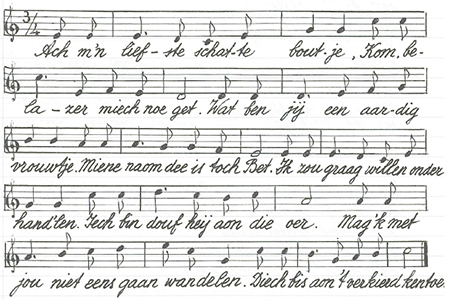 3/4
Ach m'n lief-ste schat-te bout-je, Kom, be-
la-zer miech noe get. Wat ben jij een aar-dig
vrouwtje. Miene naom dee is toch Bet. Ik zou graag willen onder
hand'len. Iech bin douf heij aon die oer. Mag'k met
jou niet eens gaan wandelen. Diech bis aon't verkierd kentoe.